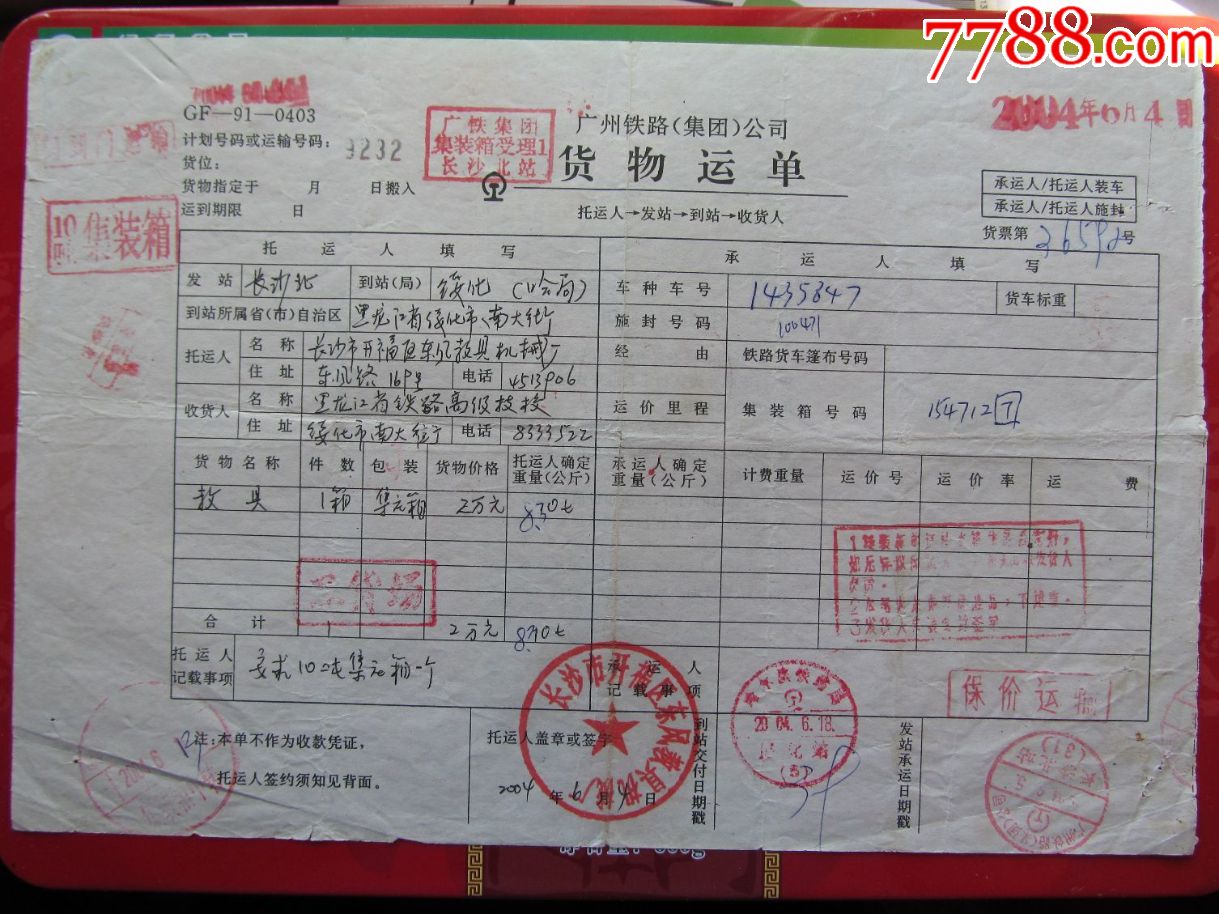 7788.com
GF—91—0403
广铁集团
集装箱受理1
长沙北站
广州铁路(集团)公司
2004年6月4日
计划号码或运输号码：
9232
货物运单
货位：
货物指定于 月 日搬入
承运人/托运人装车
运到期限 日
托运人→发站→到站→收货人
承运人/托运人施封
10吨集装箱
货票第 号
托运人填写
承运人填写
发站 长沙北 到站(局) 绥化（哈局）
车种车号 1435847 货车标重
到站所属省(市)自治区 黑龙江省绥化市南大街
施封号码 100471
托运人 名称 长沙市开福区东风教具机械厂
经由 铁路货车篷布号码
住址 东风路169号 电话 4513906
收货人 名称 黑龙江省铁路高级技校
运价里程 集装箱号码 154712
住址 绥化市南大街 电话 8333522
货物名称 件数 包装 货物价格 托运人确定重量(公斤) 承运人确定重量(公斤) 计费重量 运价号 运价率 运费
教具 1箱 集装箱 2万元 8.30t
合计 2万元 8.30t
托运人记载事项 要求10吨集装箱一个
承运人记载事项
保价运输
长沙市开福区东风教具机械厂
2004.6.18.
注：本单不作为收款凭证，
托运人签约须知见背面。
托运人盖章或签字
2004年6月4日
到站交付日期戳
发站承运日期戳